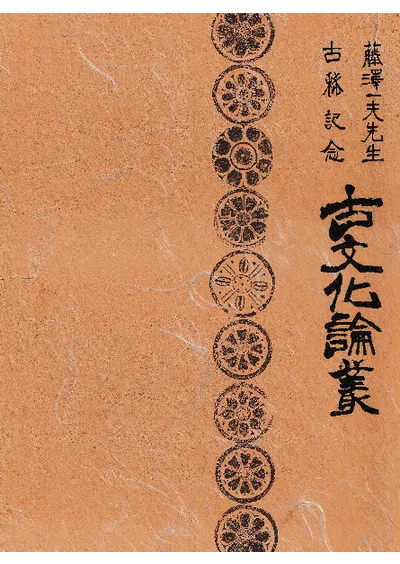 藤澤一夫先生
古稀記念
古文化論叢